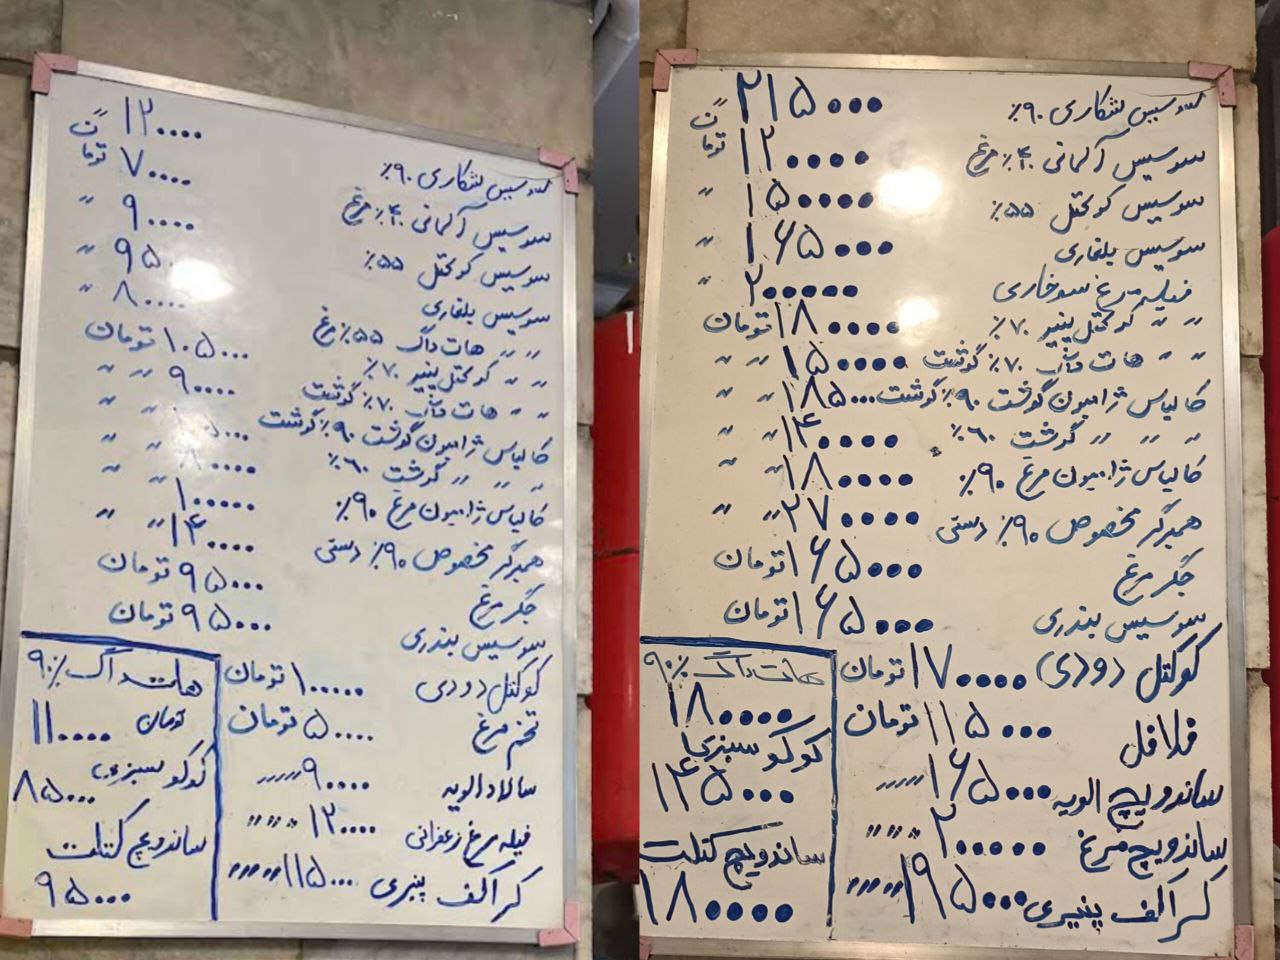 سوسیس شکاری ۹۰٪ ۱۲۰۰۰۰ ت
سوسیس آلمانی ۴۰٪ مرغ ۷۰۰۰۰ تومان
سوسیس کوکتل ۵۵٪ ۹۰۰۰۰ "
سوسیس بلغاری ۹۵۰ "
" " هات داگ ۵۵٪ مرغ ۸۰۰۰۰ "
" " کوکتل پنیر ۷۰٪ ۱۰۵۰۰۰ تومان
" " هات داگ ۷۰٪ گوشت ۹۰۰۰۰ " "
کالباس ژامبون گوشت ۹۰٪ گوشت ۰۰۰ " "
" " " گوشت ۶۰٪ ۸۰۰۰۰ " "
کالباس ژامبون مرغ ۹۰٪ ۱۰۰۰۰۰ " "
همبرگر مخصوص ۹۰٪ دستی ۱۴۰۰۰۰ " "
جگر مرغ ۹۵۰۰۰ تومان
سوسیس بندری ۹۵۰۰۰ تومان
کوکتل دودی ۱۰۰۰۰۰ تومان
تخم مرغ ۵۰۰۰۰ تومان
سالاد الویه ۹۰۰۰۰ """"
فیله مرغ زعفرانی ۱۲۰۰۰۰ """
کراکف پنیری ۱۱۵۰۰۰ """"
هات داگ ۹۰٪
۱۱۰۰۰۰ تومان
کوکو سبزی
۸۵۰۰۰
ساندویچ کتلت
۹۵۰۰۰
سوسیس شکاری ۹۰٪ ۲۱۵۰۰۰ ت
سوسیس آلمانی ۴۰٪ مرغ ۱۲۰۰۰۰ تومان
سوسیس کوکتل ۵۵٪ ۱۵۰۰۰۰ "
سوسیس بلغاری ۱۶۵۰۰۰ "
فیله مرغ سوخاری ۲۰۰۰۰۰ "
" " کوکتل پنیر ۷۰٪ ۱۸۰۰۰۰ تومان
" " هات داگ ۷۰٪ گوشت ۱۵۰۰۰۰ " "
کالباس ژامبون گوشت ۹۰٪ گوشت ۱۸۵۰۰۰ " "
" " " گوشت ۶۰٪ ۱۴۰۰۰۰ " "
کالباس ژامبون مرغ ۹۰٪ ۱۸۰۰۰۰ " "
همبرگر مخصوص ۹۰٪ دستی ۲۷۰۰۰۰ " "
جگر مرغ ۱۶۵۰۰۰ تومان
سوسیس بندری ۱۶۵۰۰۰ تومان
کوکتل دودی ۱۷۰۰۰۰ تومان
فلافل ۱۱۵۰۰۰ تومان
ساندویچ الویه ۱۶۵۰۰۰ """"
ساندویچ مرغ ۲۰۰۰۰۰ """
کراکف پنیری ۱۹۵۰۰۰ """"
هات داگ ۹۰٪
۱۸۰۰۰۰
کوکو سبزی
۱۴۵۰۰۰
ساندویچ کتلت
۱۸۰۰۰۰